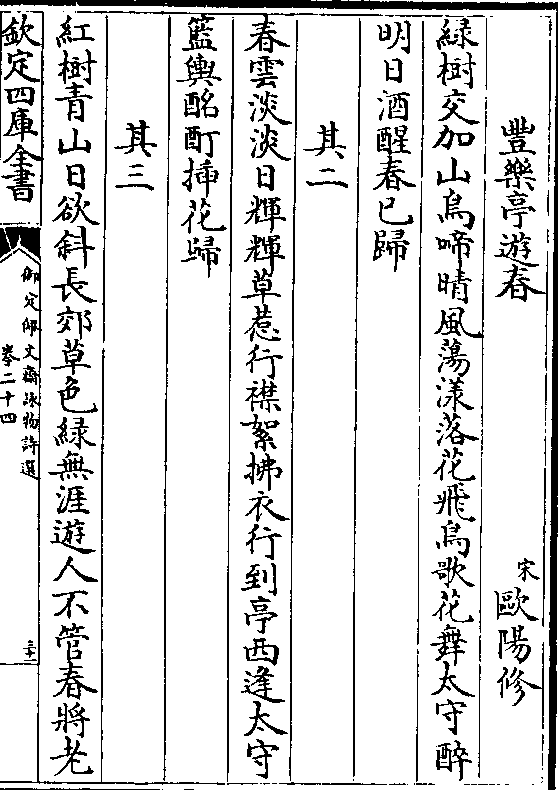 豐樂亭遊春　宋歐陽修
綠樹交加山鳥啼晴風蕩漾落花飛鳥歌花舞太守醉
明日酒醒春已歸
其二
春雲淡淡日輝輝草惹行襟絮拂衣行到亭西逢太守
籃輿酩酊揷花歸
其三
紅樹青山日欲斜長郊草色綠無涯遊人不管春將老
欽定四庫全書
御定佩文齋詠物詩選
卷二十四